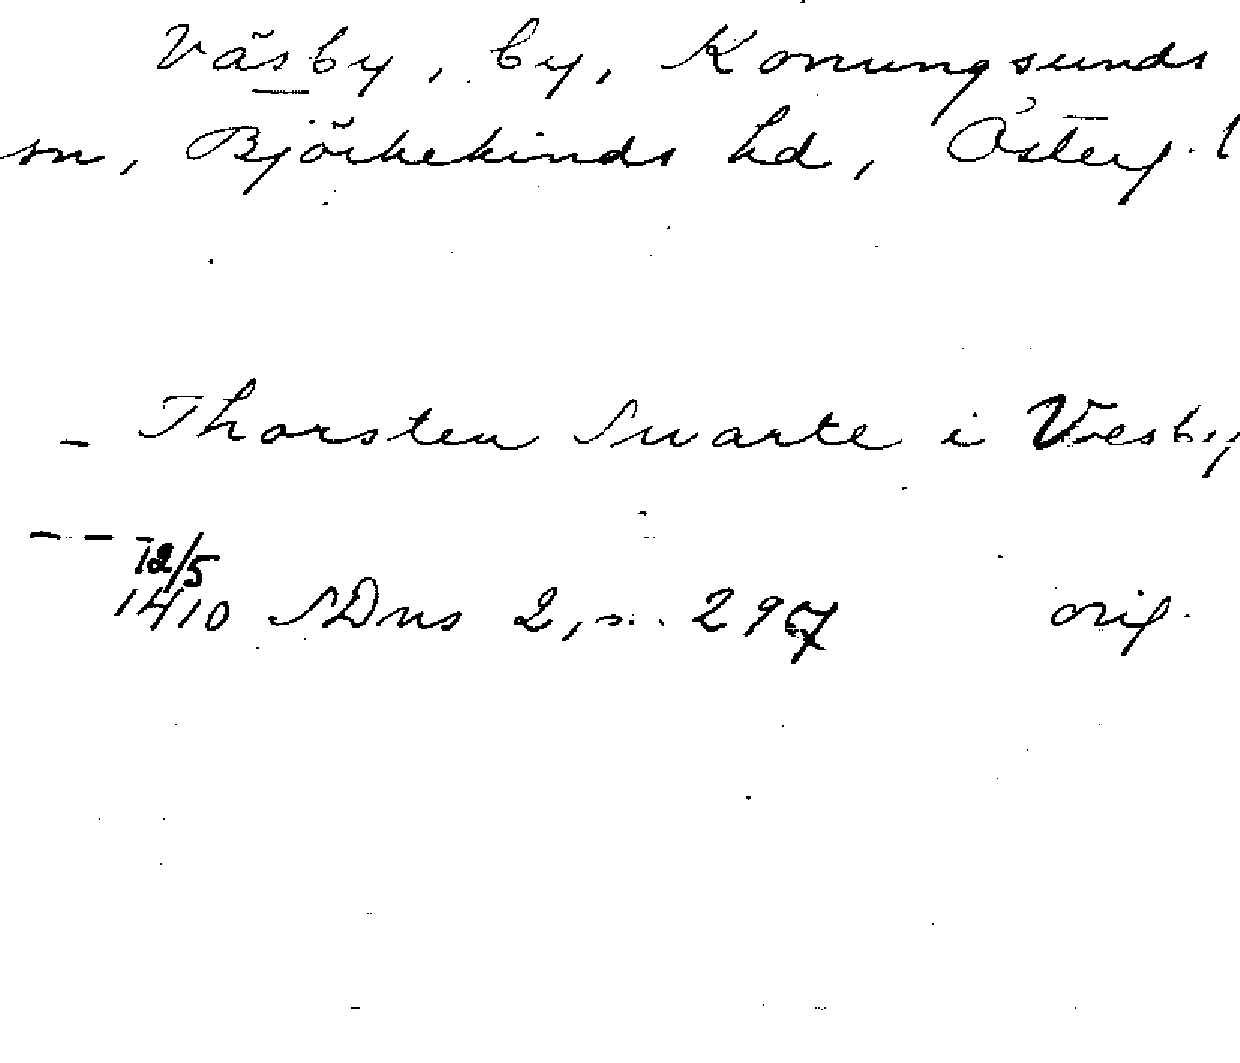 Väsby, by, Konungsunds
sn, Björkekinds hd, Österg. l
- Thorsten Swarte i Væsby
- - - 12/5
1410 SDns 2, s. 297 orig.